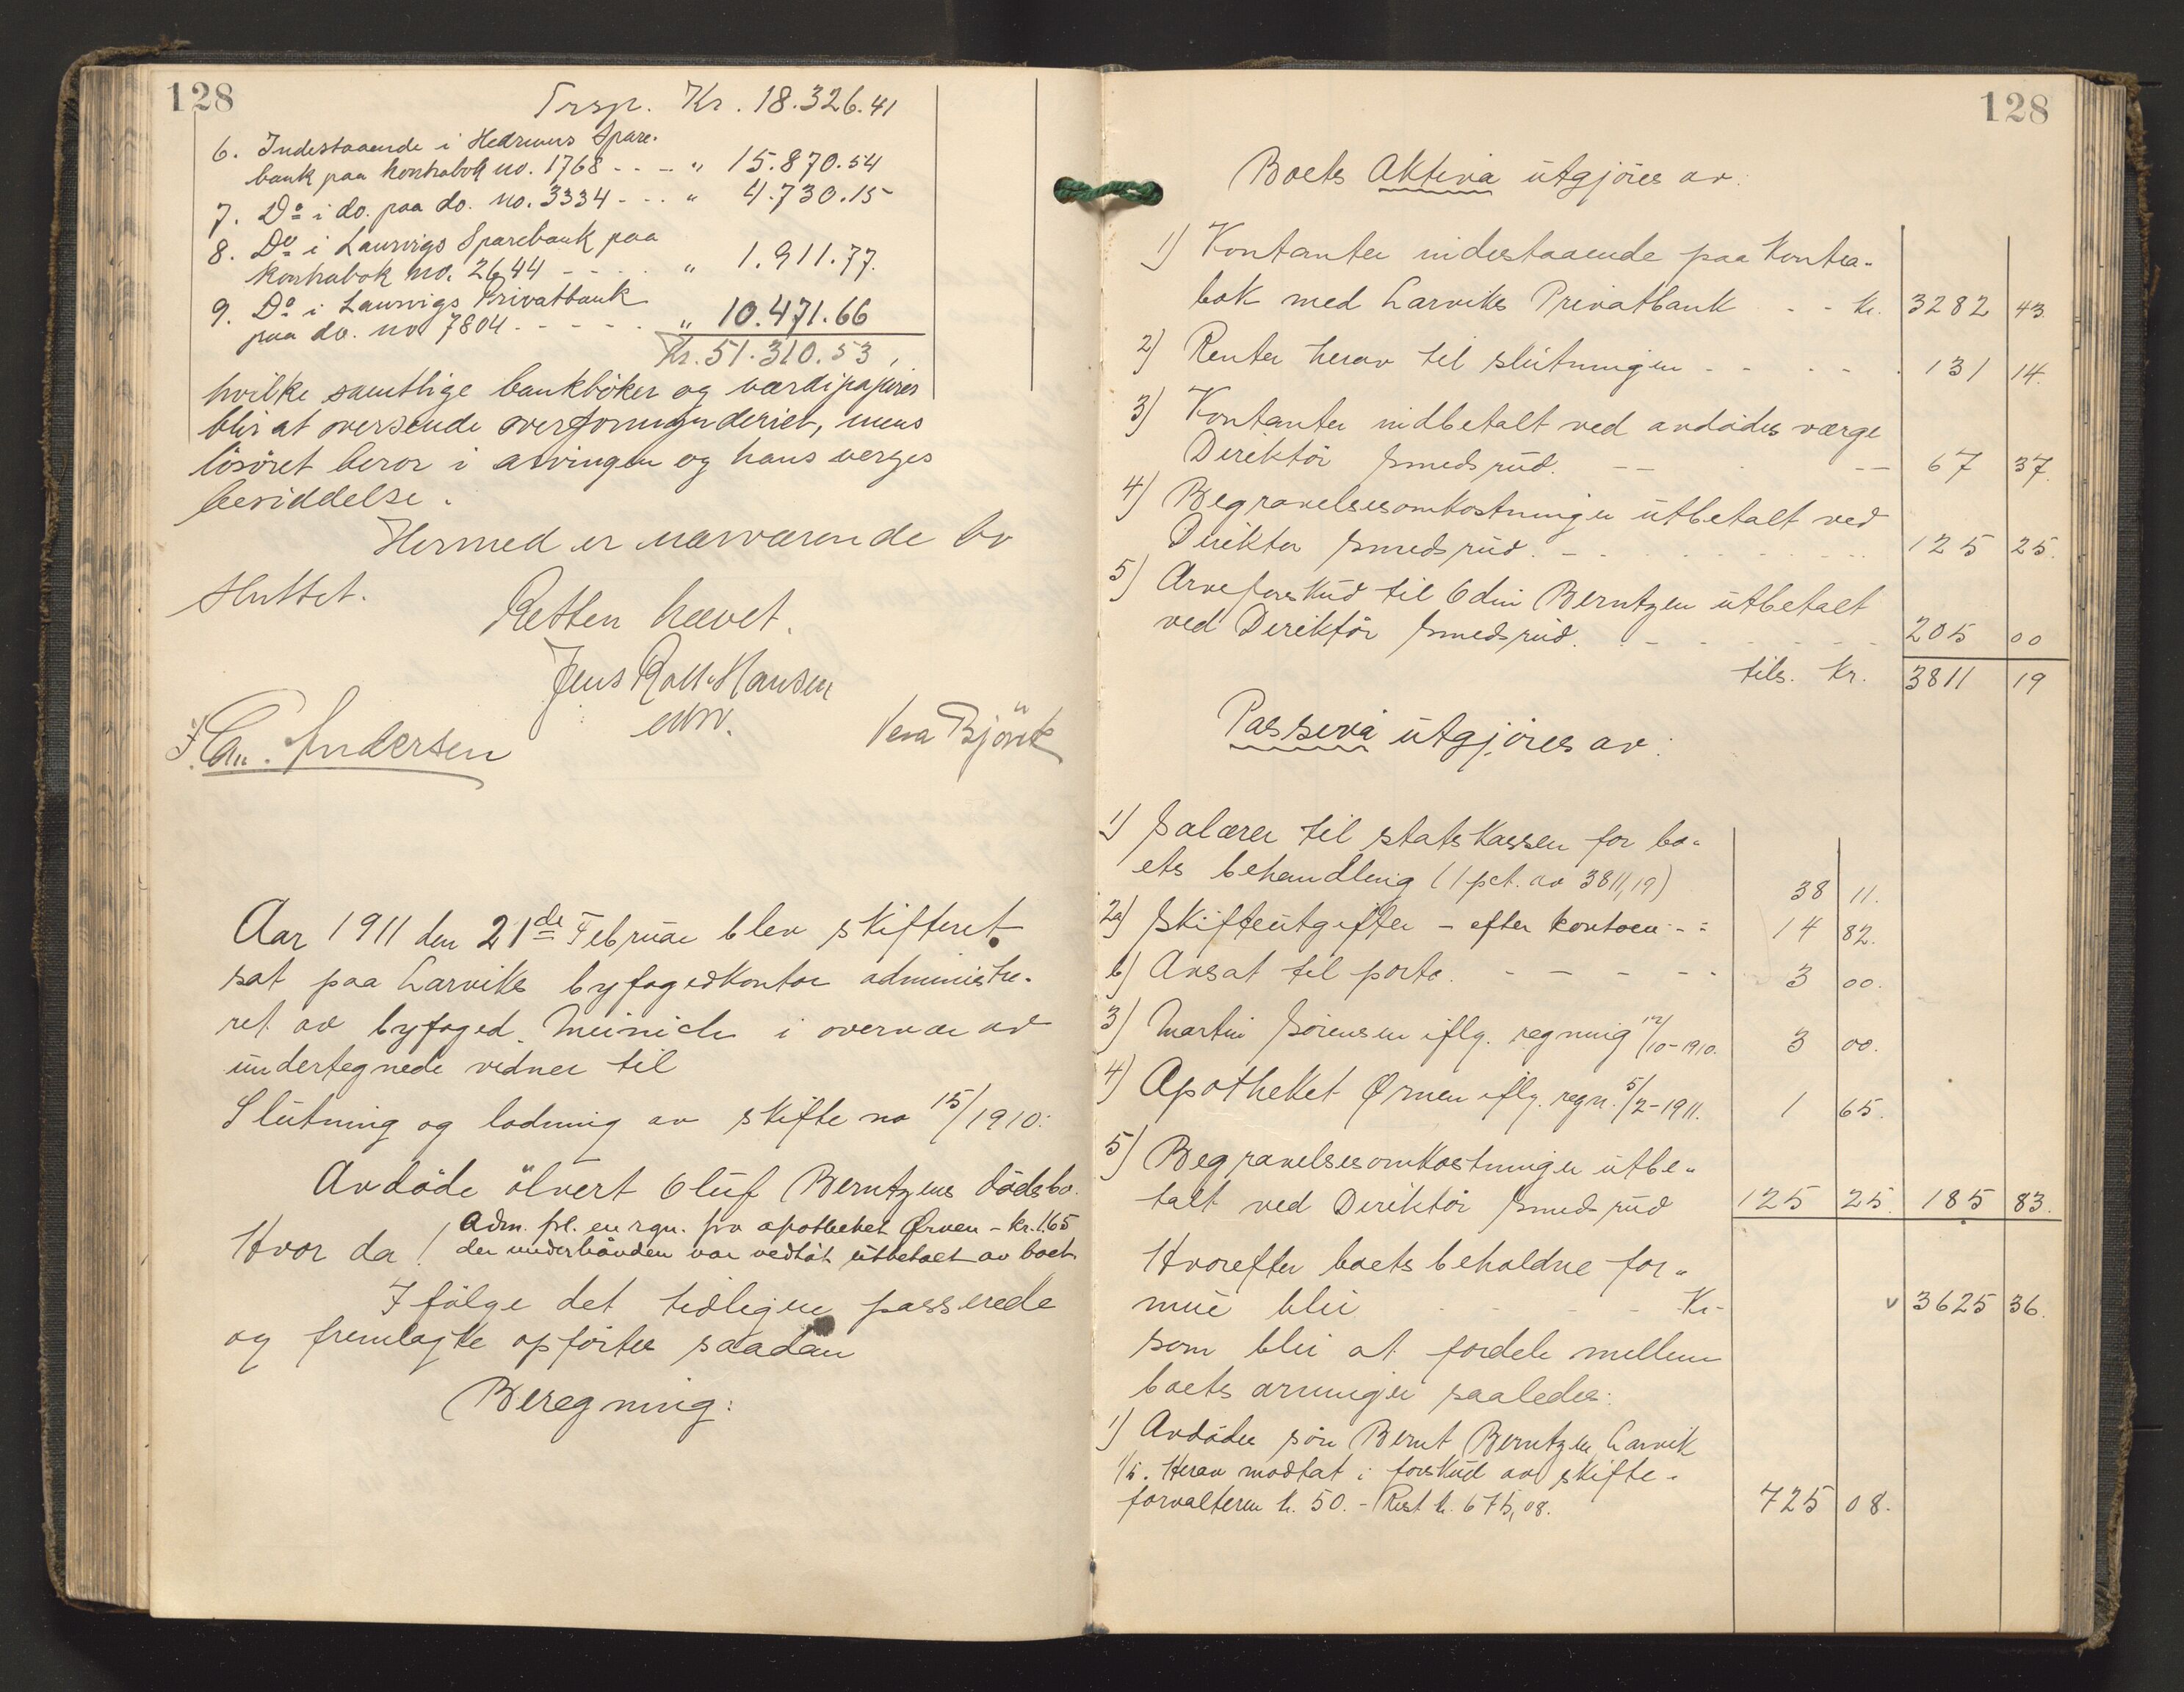 128
Trsp. Kr. 18.326.41
6. Indestaaende i Hedrums Spare-
bank paa kontrabok no. 1768 - - - " 15.870.54
7. Do i do. paa do. no. 3334 - - - " 4.730.15
8. Do i Laurvigs Sparebank paa
kontrabok no. 2644 - - - - " 1.911.77.
9. Do i Laurvigs Privatbank
paa do. no 7804 - - - - - " 10.471.66
Kr. 51.310.53,
hvilke samtlige bankböker og værdipapirer
blir at oversende overformynderiet, mens
lösöret beror i arvingen og hans verges
besiddelse.
Hermed er nærværende bo
sluttet.
Retten hævet.
Jens Roll-Hansen
const.
F. Chr. Andersen
Vera Björk
Aar 1911 den 21de Februar blev skifteret
sat paa Larviks byfogedkontor administre-
ret av byfoged Meinich i overvær av
undertegnede vidner til
Slutning og lodning av skifte no 15/1910:
Avdöde ölvert Oluf Berntzens dödsbo.
Hvor da!
Adm. frl. en regn. fra apotheket Ørnen - kr. 1.65
der underhånden var vedtat utbetalt av boet.
I fölge det tidligere passerede
og fremlagte opförtes saadan
Beregning:
128
Boets Aktiva utgjöres av:
1) Kontanter indestaaende paa Kontra-
bok med Larviks Privatbank - - kr. 3282 43.
2) Renter herav til slutningen - - - - - 131 14.
3) Kontanter indbetalt ved avdödes værge
Direktör Smedsrud. - - - - 67 37.
4) Begravelsesomkostninger utbetalt ved
Direktör Smedsrud. - - - - - 125 25.
5) Arveforskud til Odin Berntzen utbetalt
ved Direktör Smedsrud. - - - - - 205 00
tils. Kr. 3811 19
Passiva utgjöres av:
1) Salærer til statskassen for bo-
ets behandling (1 pct. av 3811,19) 38 11.
2a) Skifteutgifter - efter kontoen - - 14 82.
b) Avsat til porto. - - - - - 3 00.
3) Martin Sörensen iflg. regning 12/10-1910. 3 00.
4) Apotheket Ørnen iflg. regn. 5/2-1911. 1 65.
5) Begravelsesomkostninger utbe-
talt ved Direktör Smedsrud 125 25. 185 83.
Hvorefter boets beholdne for-
mue blir - - - - Kr - v 3625 36.
som blir at fordele mellem
boets arvinger saaledes:
1) Avdödes sön Bernt Berntzen, Larvik
1/5. Herav modtat i forskud av skifte-
forvalteren kr. 50. - Rest kr. 675,08. 725 08.